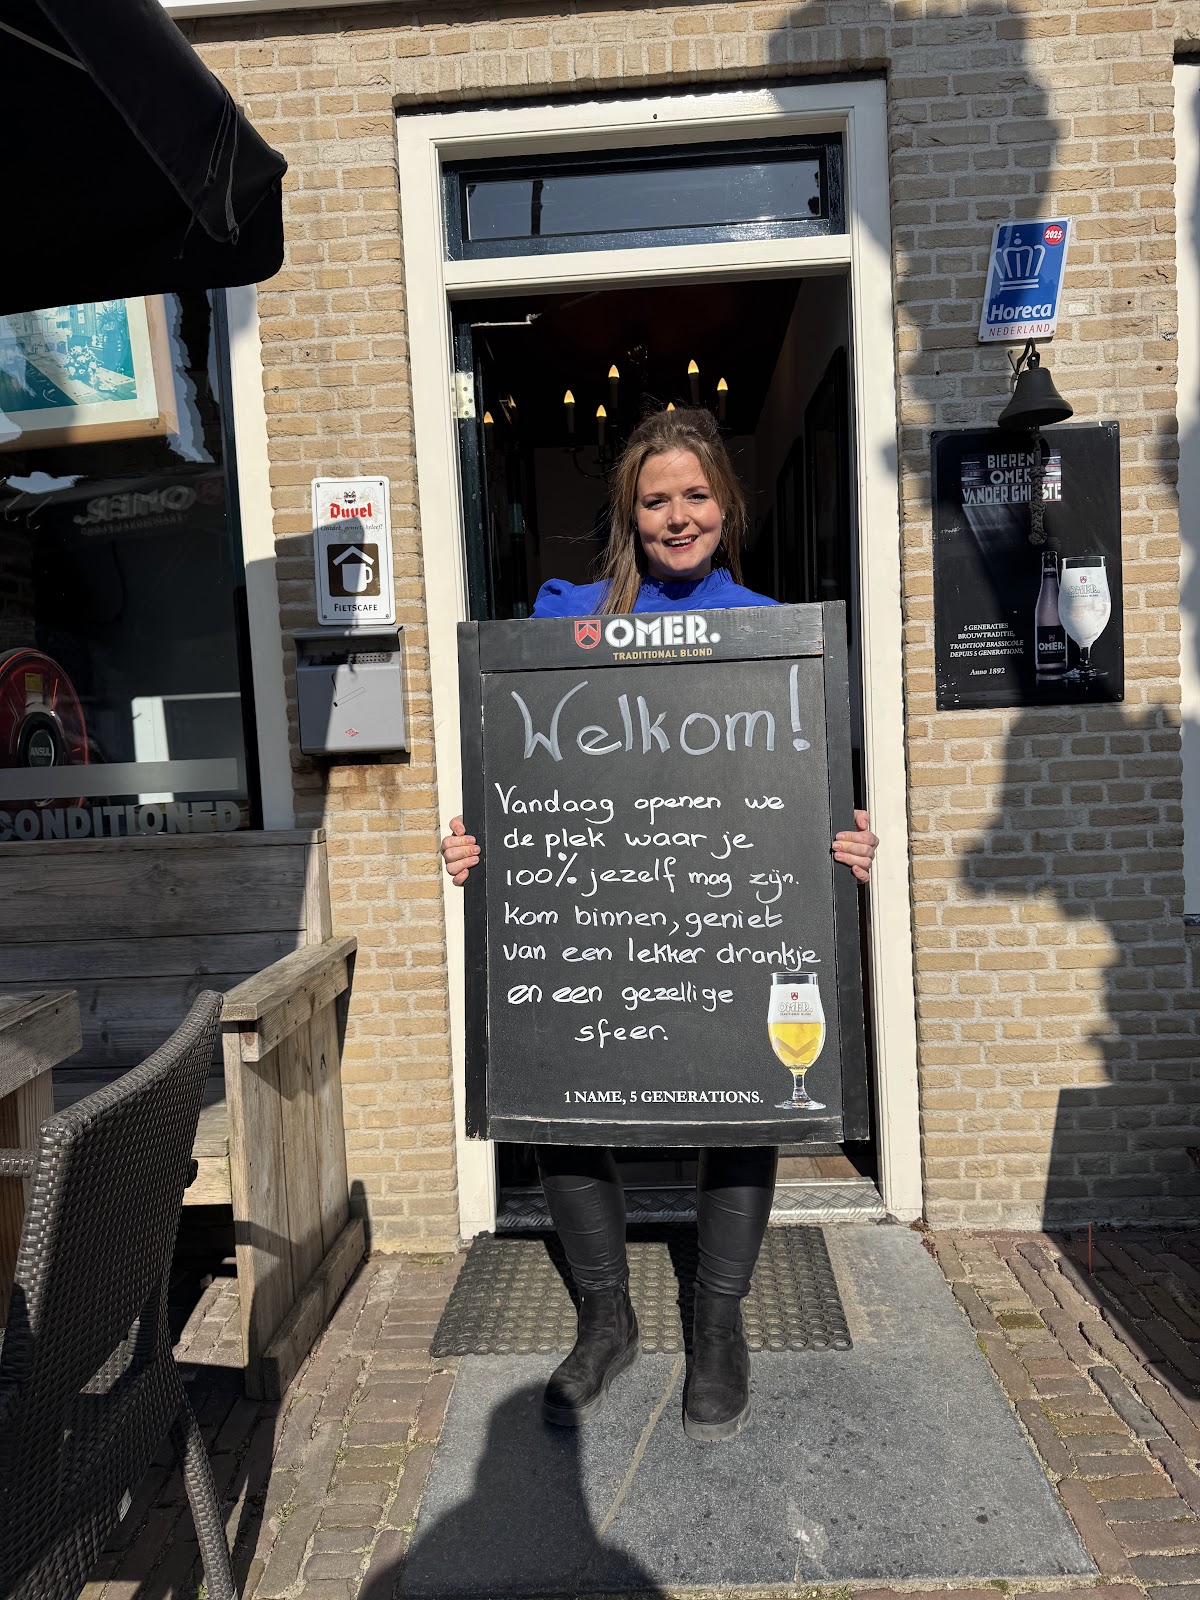 2025
Horeca
NEDERLAND
BIEREN
OMER
VANDER GHINSTE
OMER.
TRADITIONAL BLOND
OMER.
5 GENERATIES
BROUWTRADITIE,
TRADITION BRASSICOLE
DEPUIS 5 GENERATIONS,
Anno 1892
Duvel
Ontdek, geniet, beleef!
FIETSCAFE
OMER.
ANSUL
CONDITIONED
OMER.
TRADITIONAL BLOND
Welkom!
Vandaag openen we
de plek waar je
100% jezelf mag zijn.
Kom binnen, geniet
van een lekker drankje
en een gezellige
sfeer.
OMER.
TRADITIONAL BLOND
1 NAME, 5 GENERATIONS.